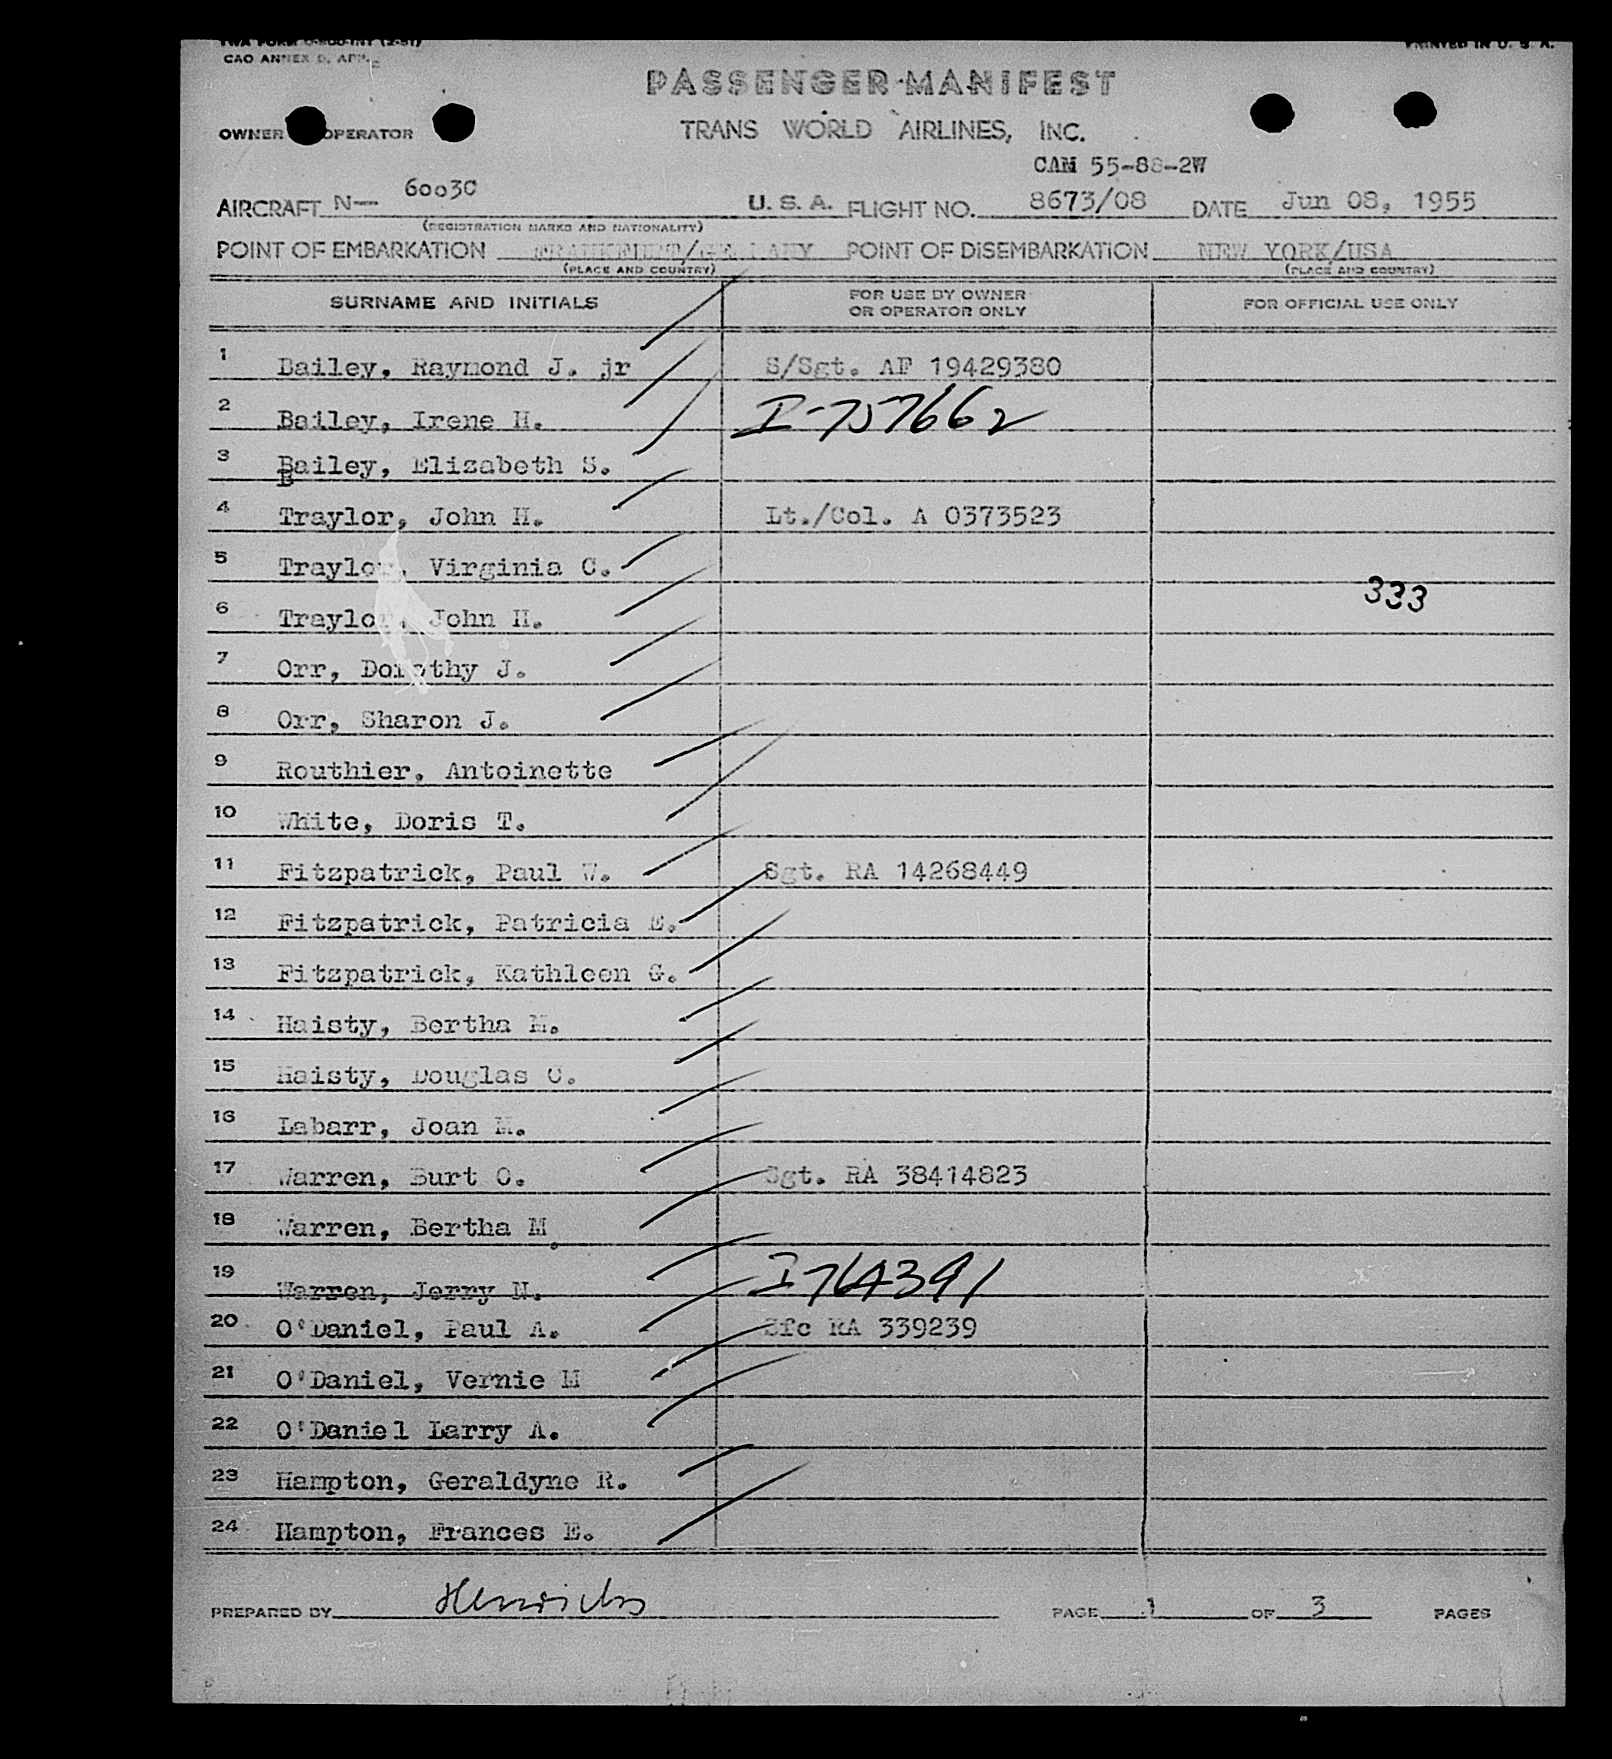 TWA FORM
PRINTED IN U. S. A.
CAO ANNEX
PASSENGER MANIFEST
OWNER OPERATOR
TRANS WORLD AIRLINES, INC.
CAM 55-88-2W
AIRCRAFT N— 6003C U. S. A. FLIGHT NO. 8673/08 DATE Jun 08, 1955
(REGISTRATION MARKS AND NATIONALITY)
POINT OF EMBARKATION FRANKFURT/GERMANY POINT OF DISEMBARKATION NEW YORK/USA
(PLACE AND COUNTRY) (PLACE AND COUNTRY)
SURNAME AND INITIALS FOR USE BY OWNER OR OPERATOR ONLY FOR OFFICIAL USE ONLY
1 Bailey, Raymond J. jr S/Sgt. AF 19429380
2 Bailey, Irene H. I-757662
3 Bailey, Elizabeth S.
4 Traylor, John H. Lt./Col. A 0373523
5 Traylor, Virginia C.
333
6 Traylor, John H.
7 Orr, Dorothy J.
8 Orr, Sharon J.
9 Routhier, Antoinette
10 White, Doris T.
11 Fitzpatrick, Paul W. Sgt. RA 14268449
12 Fitzpatrick, Patricia E.
13 Fitzpatrick, Kathleen G.
14 Haisty, Bertha M.
15 Haisty, Douglas C.
16 Labarr, Joan M.
17 Warren, Burt O. Sgt. RA 38414823
18 Warren, Bertha M.
19 Warren, Jerry N. I764391
20 O'Daniel, Paul A. Sfc RA 339239
21 O'Daniel, Vernie M
22 O'Daniel Larry A.
23 Hampton, Geraldyne R.
24 Hampton, Frances E.
PREPARED BY Henrichs PAGE 1 OF 3 PAGES